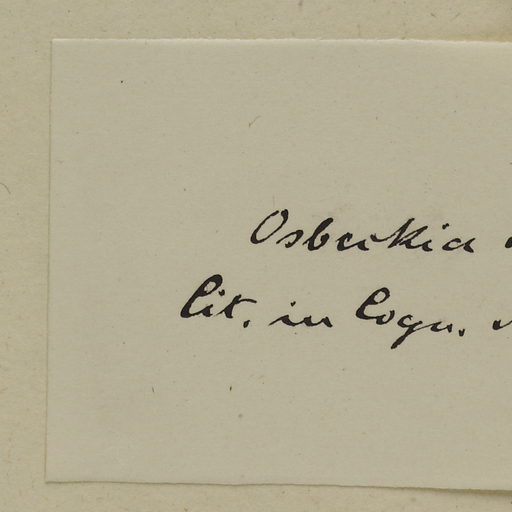 Osbeckia
Cit. in Cogn.